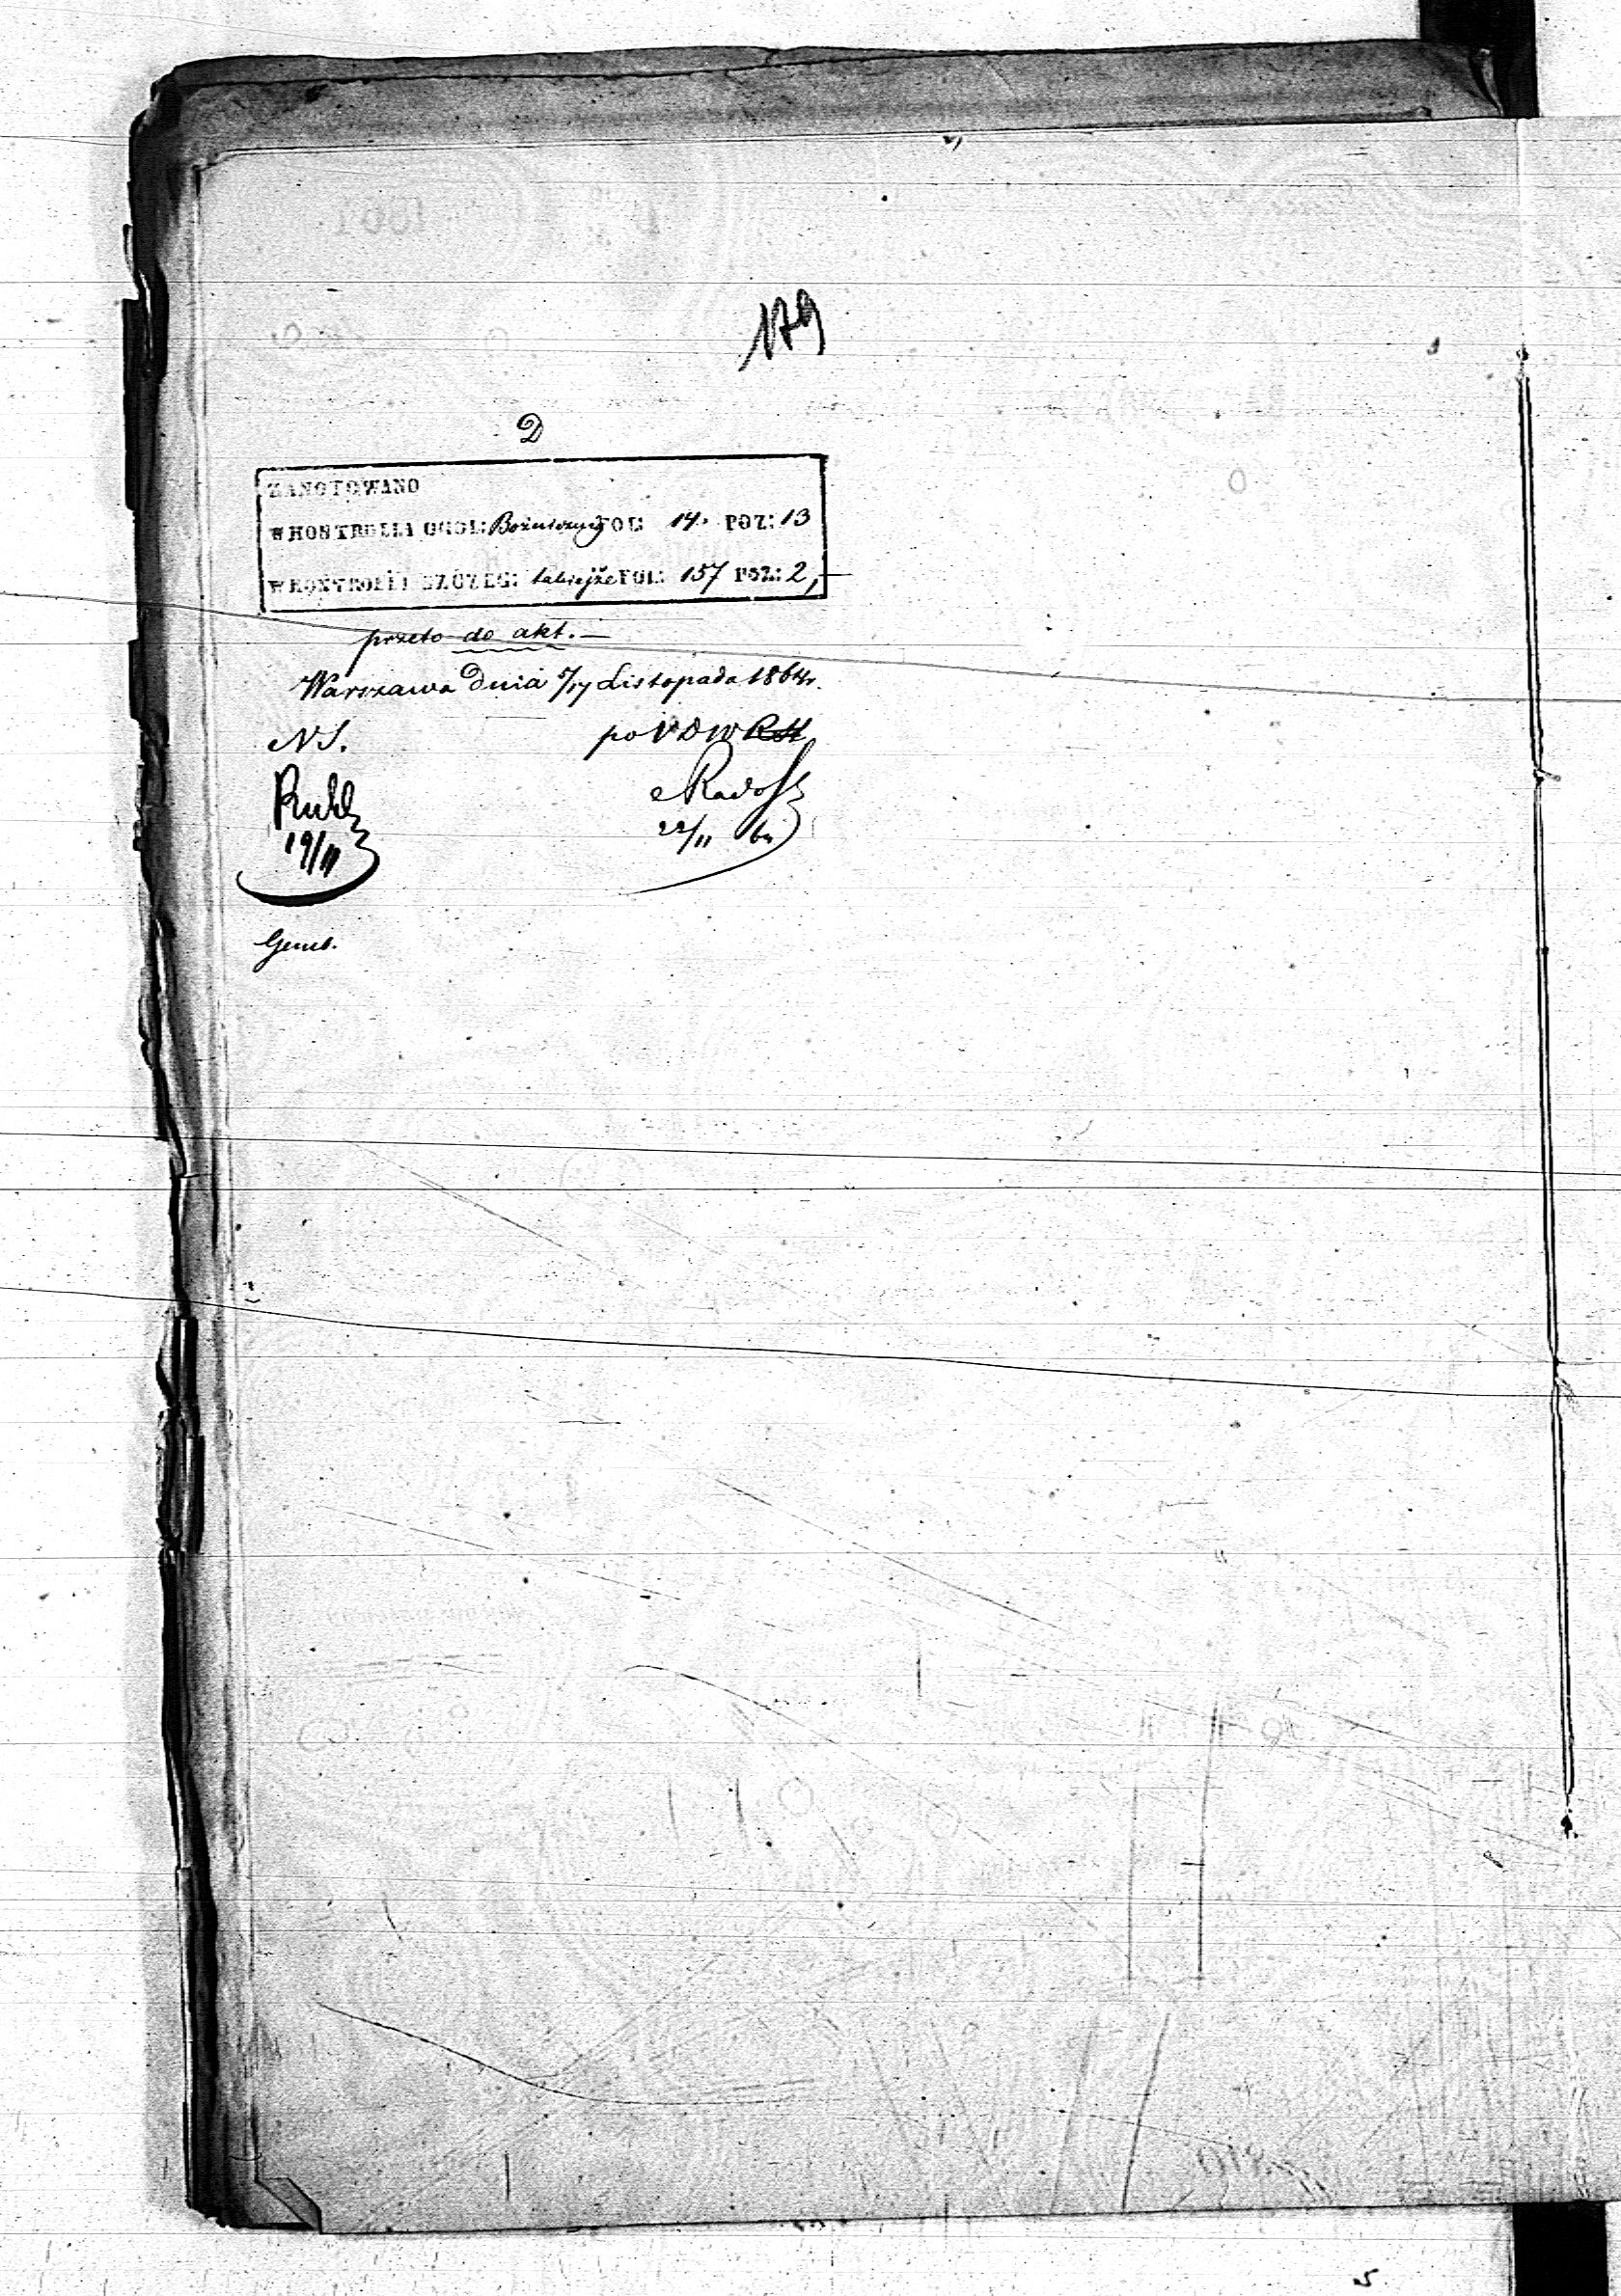 179
D
ZANOTOWANO
W KONTROLLI OGOL: Bożniczny FOL: 14. POZ: 13
W KONTROLLI SZCZEG: takiejże FOL: 157 POZ: 2,
przeto do akt. —
Warszawa Dnia 5/17 Listopada 1864 r.
NS. po N D W
19/11 22/11 64